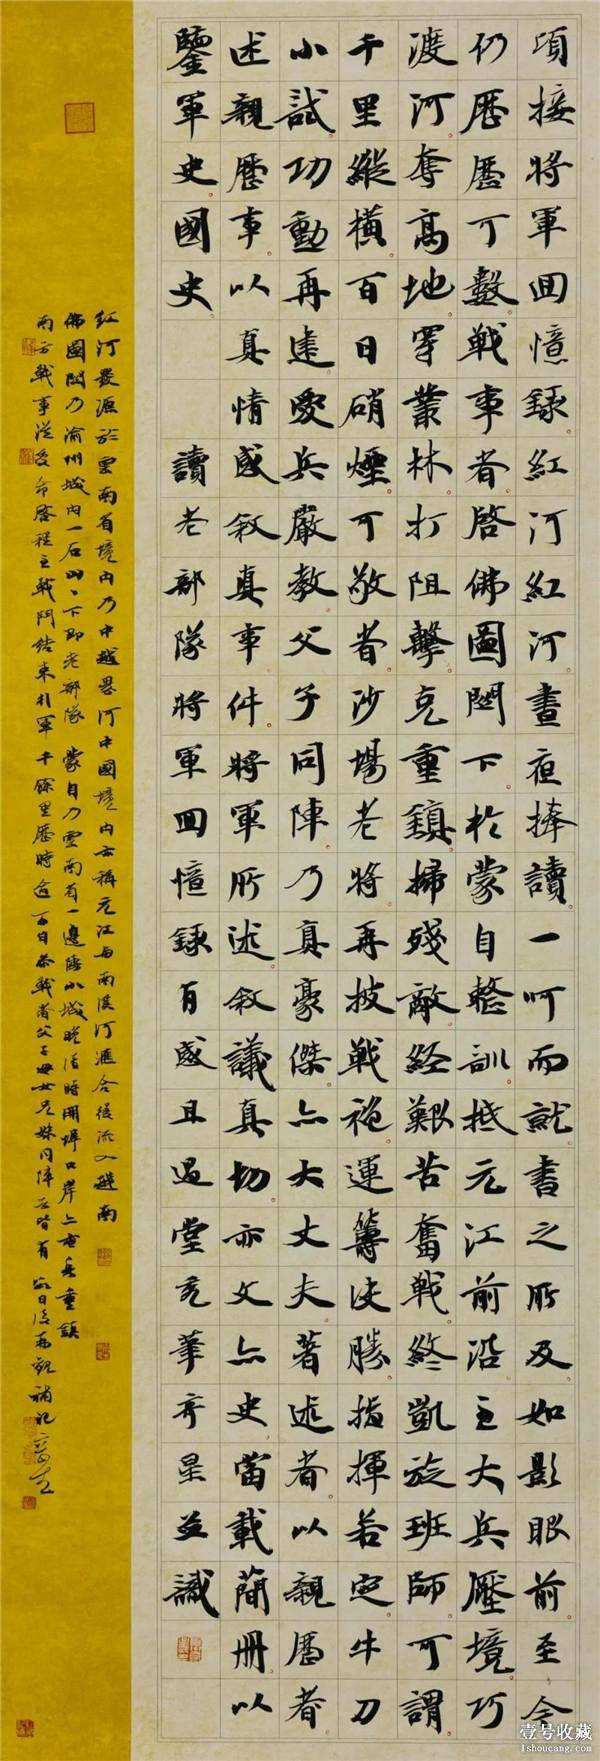 頃接將軍回憶錄紅河紅河晝夜捧讀一呵而就書之所及如影眼前至今
仍歷歷可數戰事者啓佛圖関下於蒙自整訓抵元江前沿主大兵壓境巧
渡河奪高地穿叢林打阻擊克重鎮掃殘敵經艱苦奮戰終凱旋班師可謂
千里縱橫百日硝煙可敬者沙場老將再披戰袍運籌決勝指揮若定牛刀
小試功勳再建愛兵嚴教父子同陣乃真豪傑亦大丈夫著述者以親歷者
述親歷事以真情感敘真事件將軍所述敘議真切亦文亦史當載簡冊以
鑒軍史國史
讀老部隊將軍回憶錄有感且過堂主筆齊星並識
紅河發源於雲南省境内乃中越界河中國境内亦稱元江與南溪河滙合後流入越南
佛圖関乃渝州城内一石山山下即老部隊 蒙自乃雲南省一邊陲小城晚清時開埠口岸亦古兵重鎮
南方戰事從受命啓程至戰鬥結束行軍千餘里歷時近百日参戰者父子母女兄妹同陣者皆有 數日後再觀補記
壹号收藏
1shoucang.com